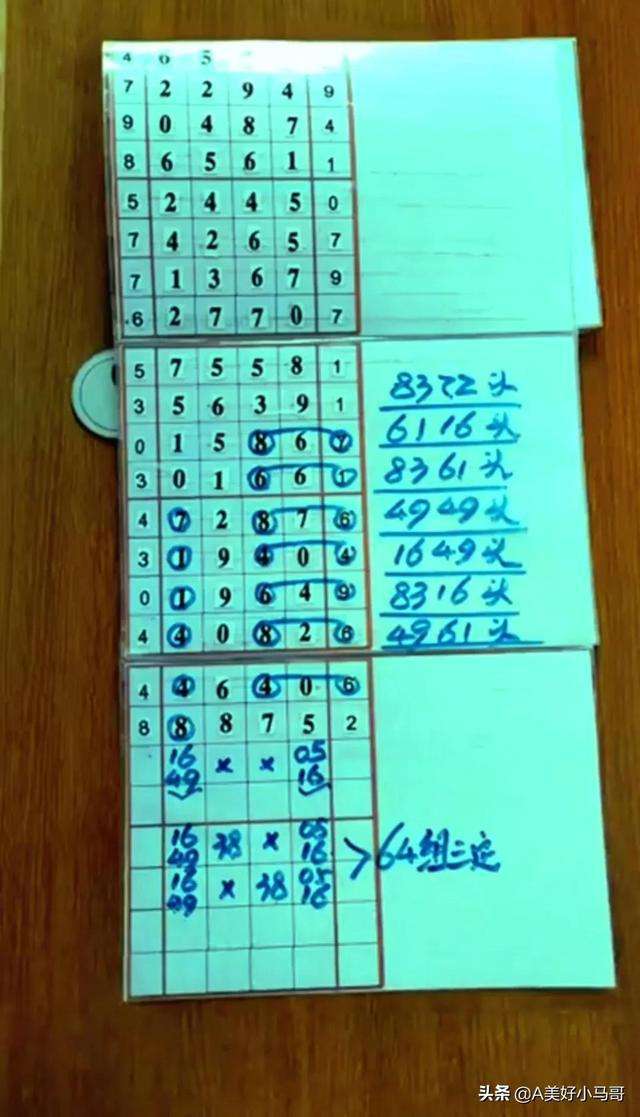 4 0 5
7 2 2 9 4 9
9 0 4 8 7 4
8 6 5 6 1 1
5 2 4 4 5 0
7 4 2 6 5 7
7 1 3 6 7 9
6 2 7 7 0 7
5 7 5 5 8 1
3 5 6 3 9 1
0 1 5 8 6 7
3 0 1 6 6 1
4 7 2 8 7 6
3 1 9 4 0 4
0 1 9 6 4 9
4 4 0 8 2 6
8322头
6116头
8361头
4949头
1649头
8316头
4961头
4 4 6 4 0 6
8 8 8 7 5 2
16 05
49 × × 16
16 05
49 38 × 16
16 05
49 × 38 16
>64组三定
头条 @A美好小马哥